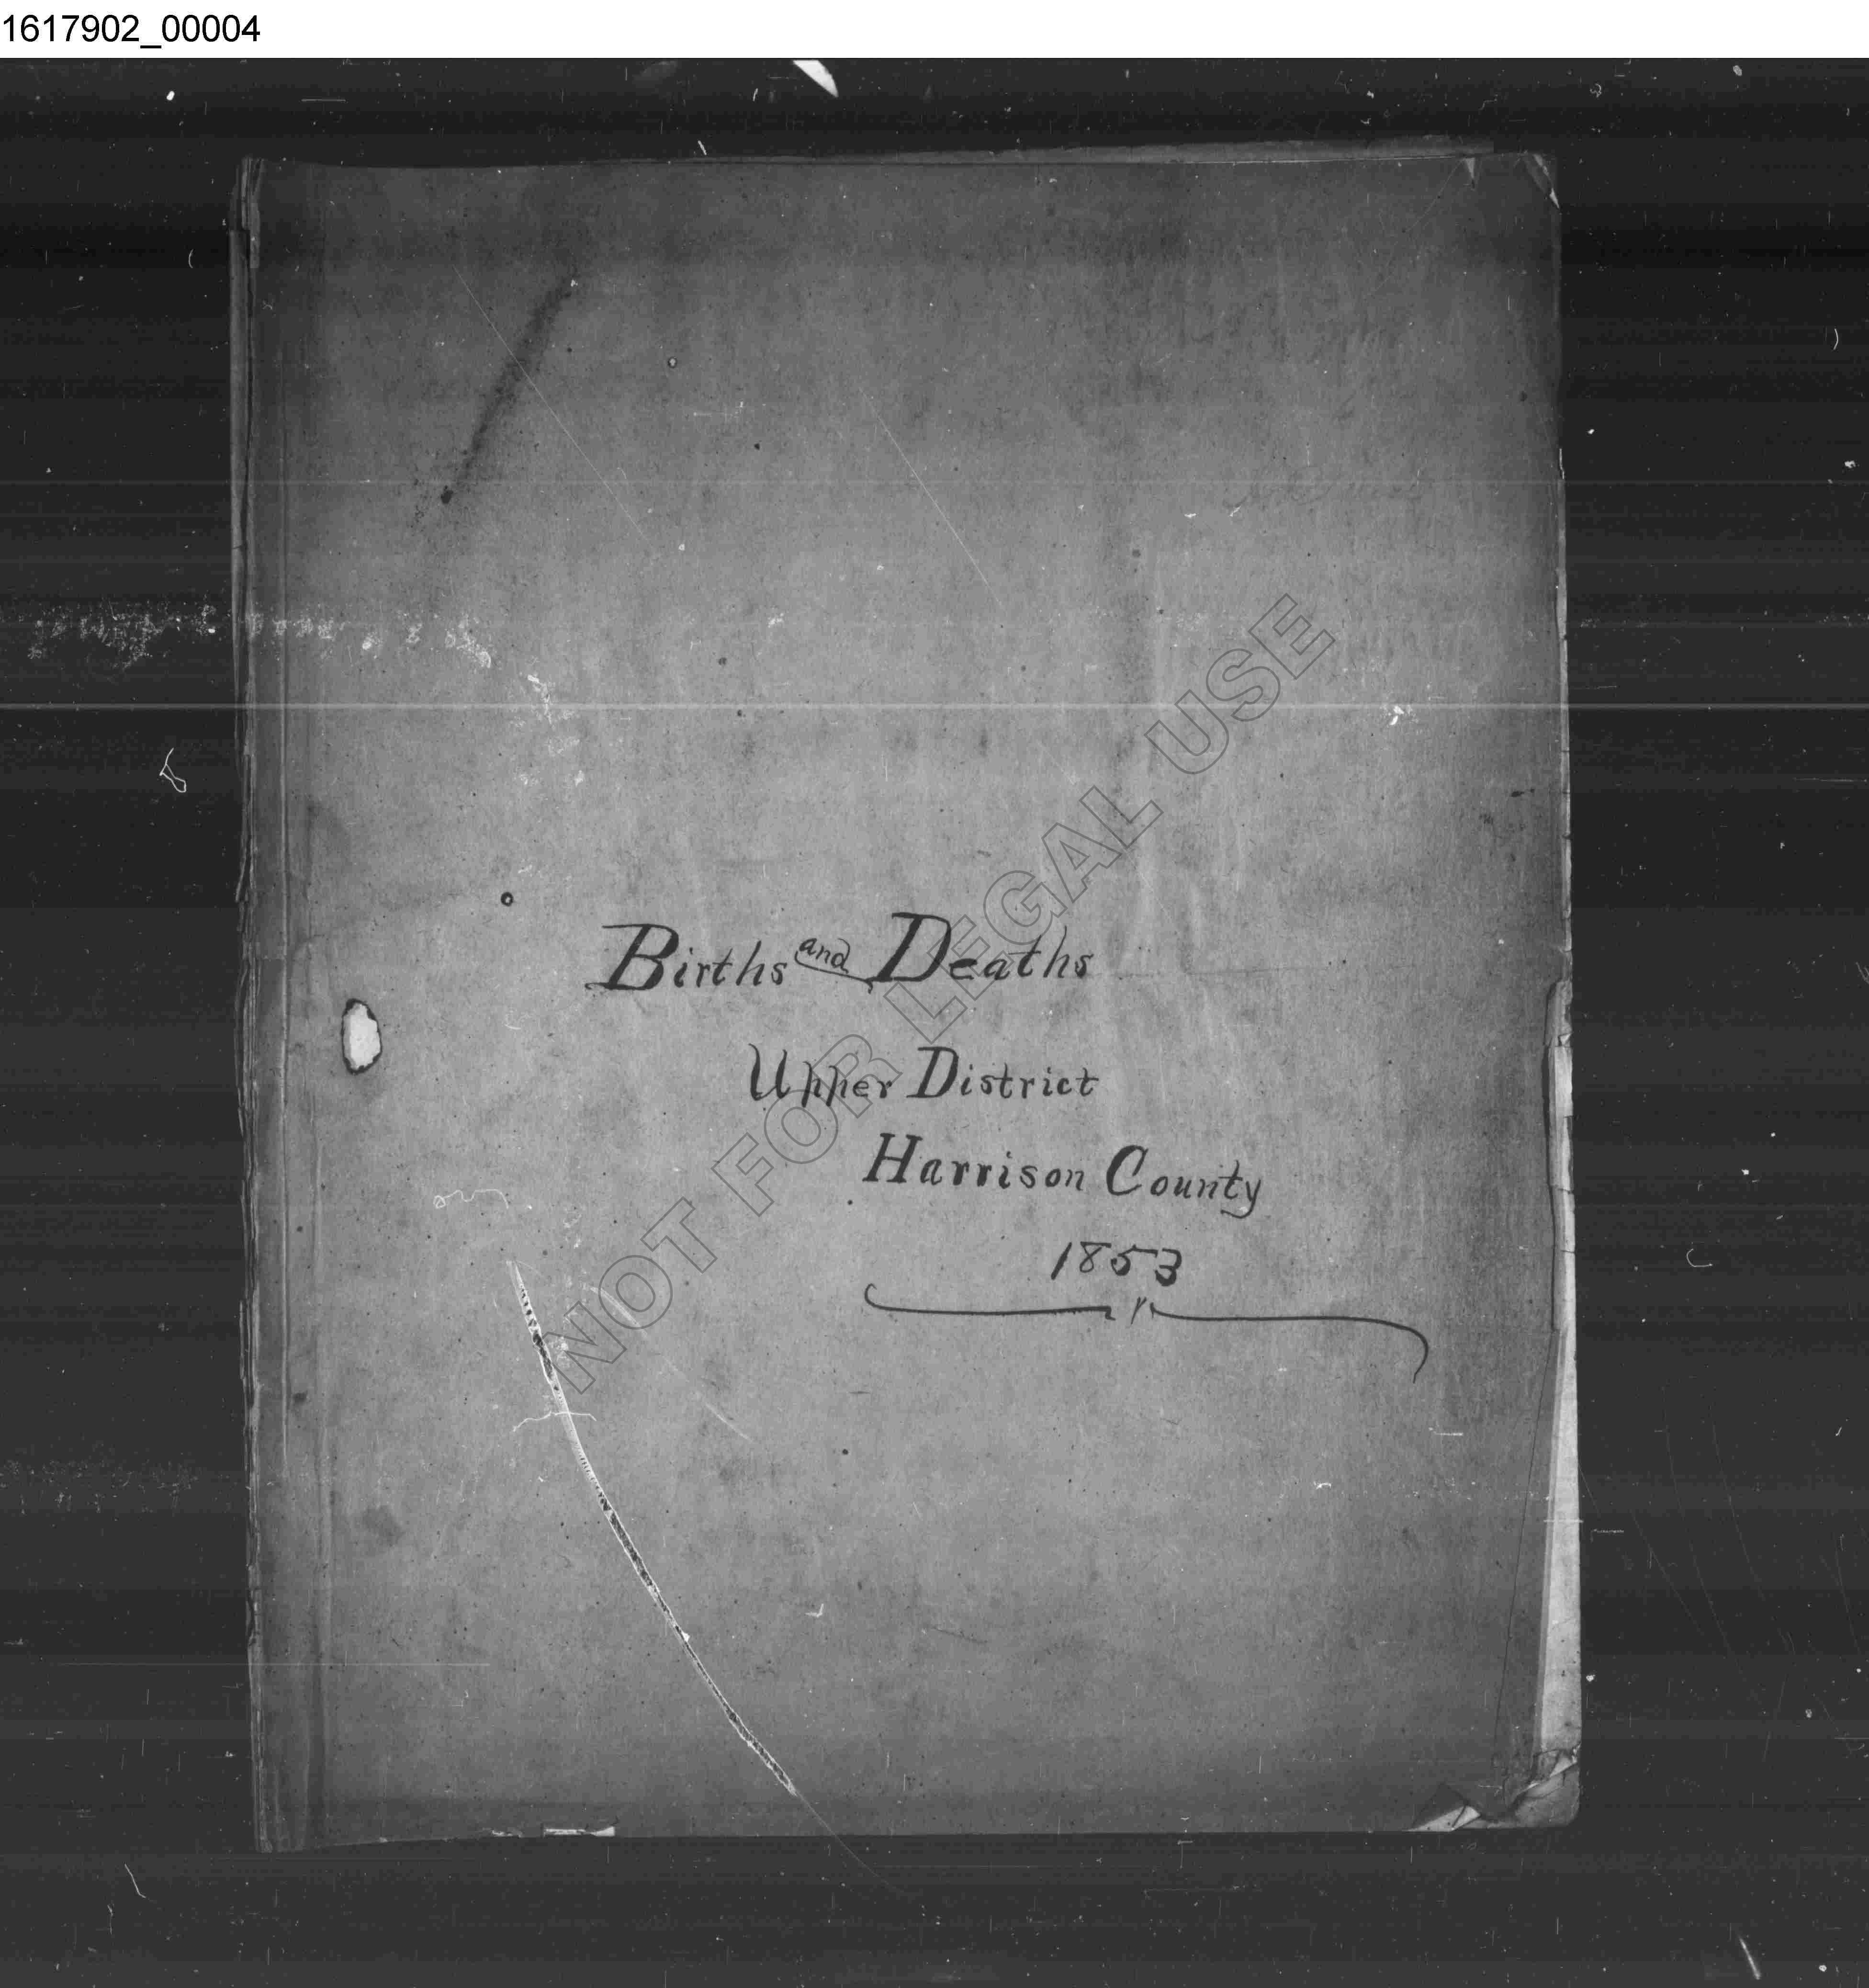 1617902_00004
Births and Deaths
Upper District
Harrison County
1853
NOT FOR LEGAL USE